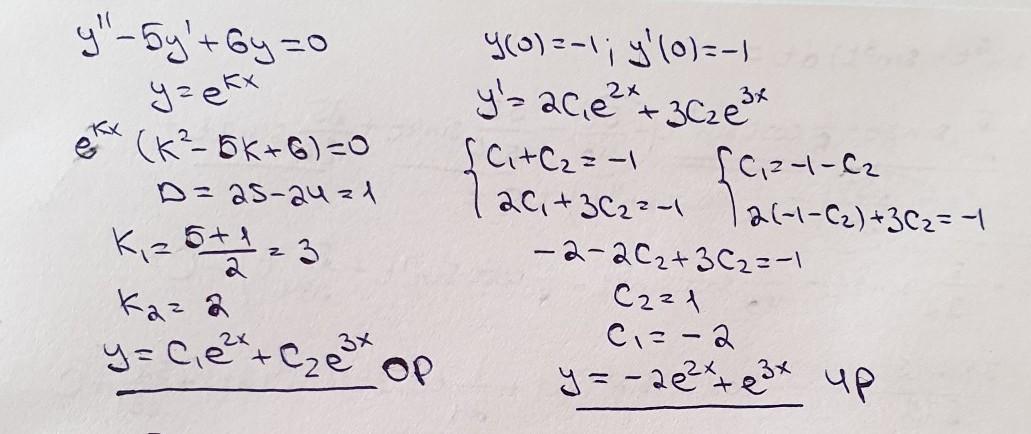 y'' - 5y' + 6y = 0
y = e^{kx}
e^{kx} (k² - 5k + 6) = 0
D = 25 - 24 = 1
K₁ = \frac{5+1}{2} = 3
K₂ = 2
y = C₁e^{2x} + C₂e^{3x} ОР
y(0) = -1; y'(0) = -1
y' = 2C₁e^{2x} + 3C₂e^{3x}
{ C₁ + C₂ = -1 { C₁ = -1 - C₂
2C₁ + 3C₂ = -1 2(-1 - C₂) + 3C₂ = -1
-2 - 2C₂ + 3C₂ = -1
C₂ = 1
C₁ = -2
y = -2e^{2x} + e^{3x} ЧР